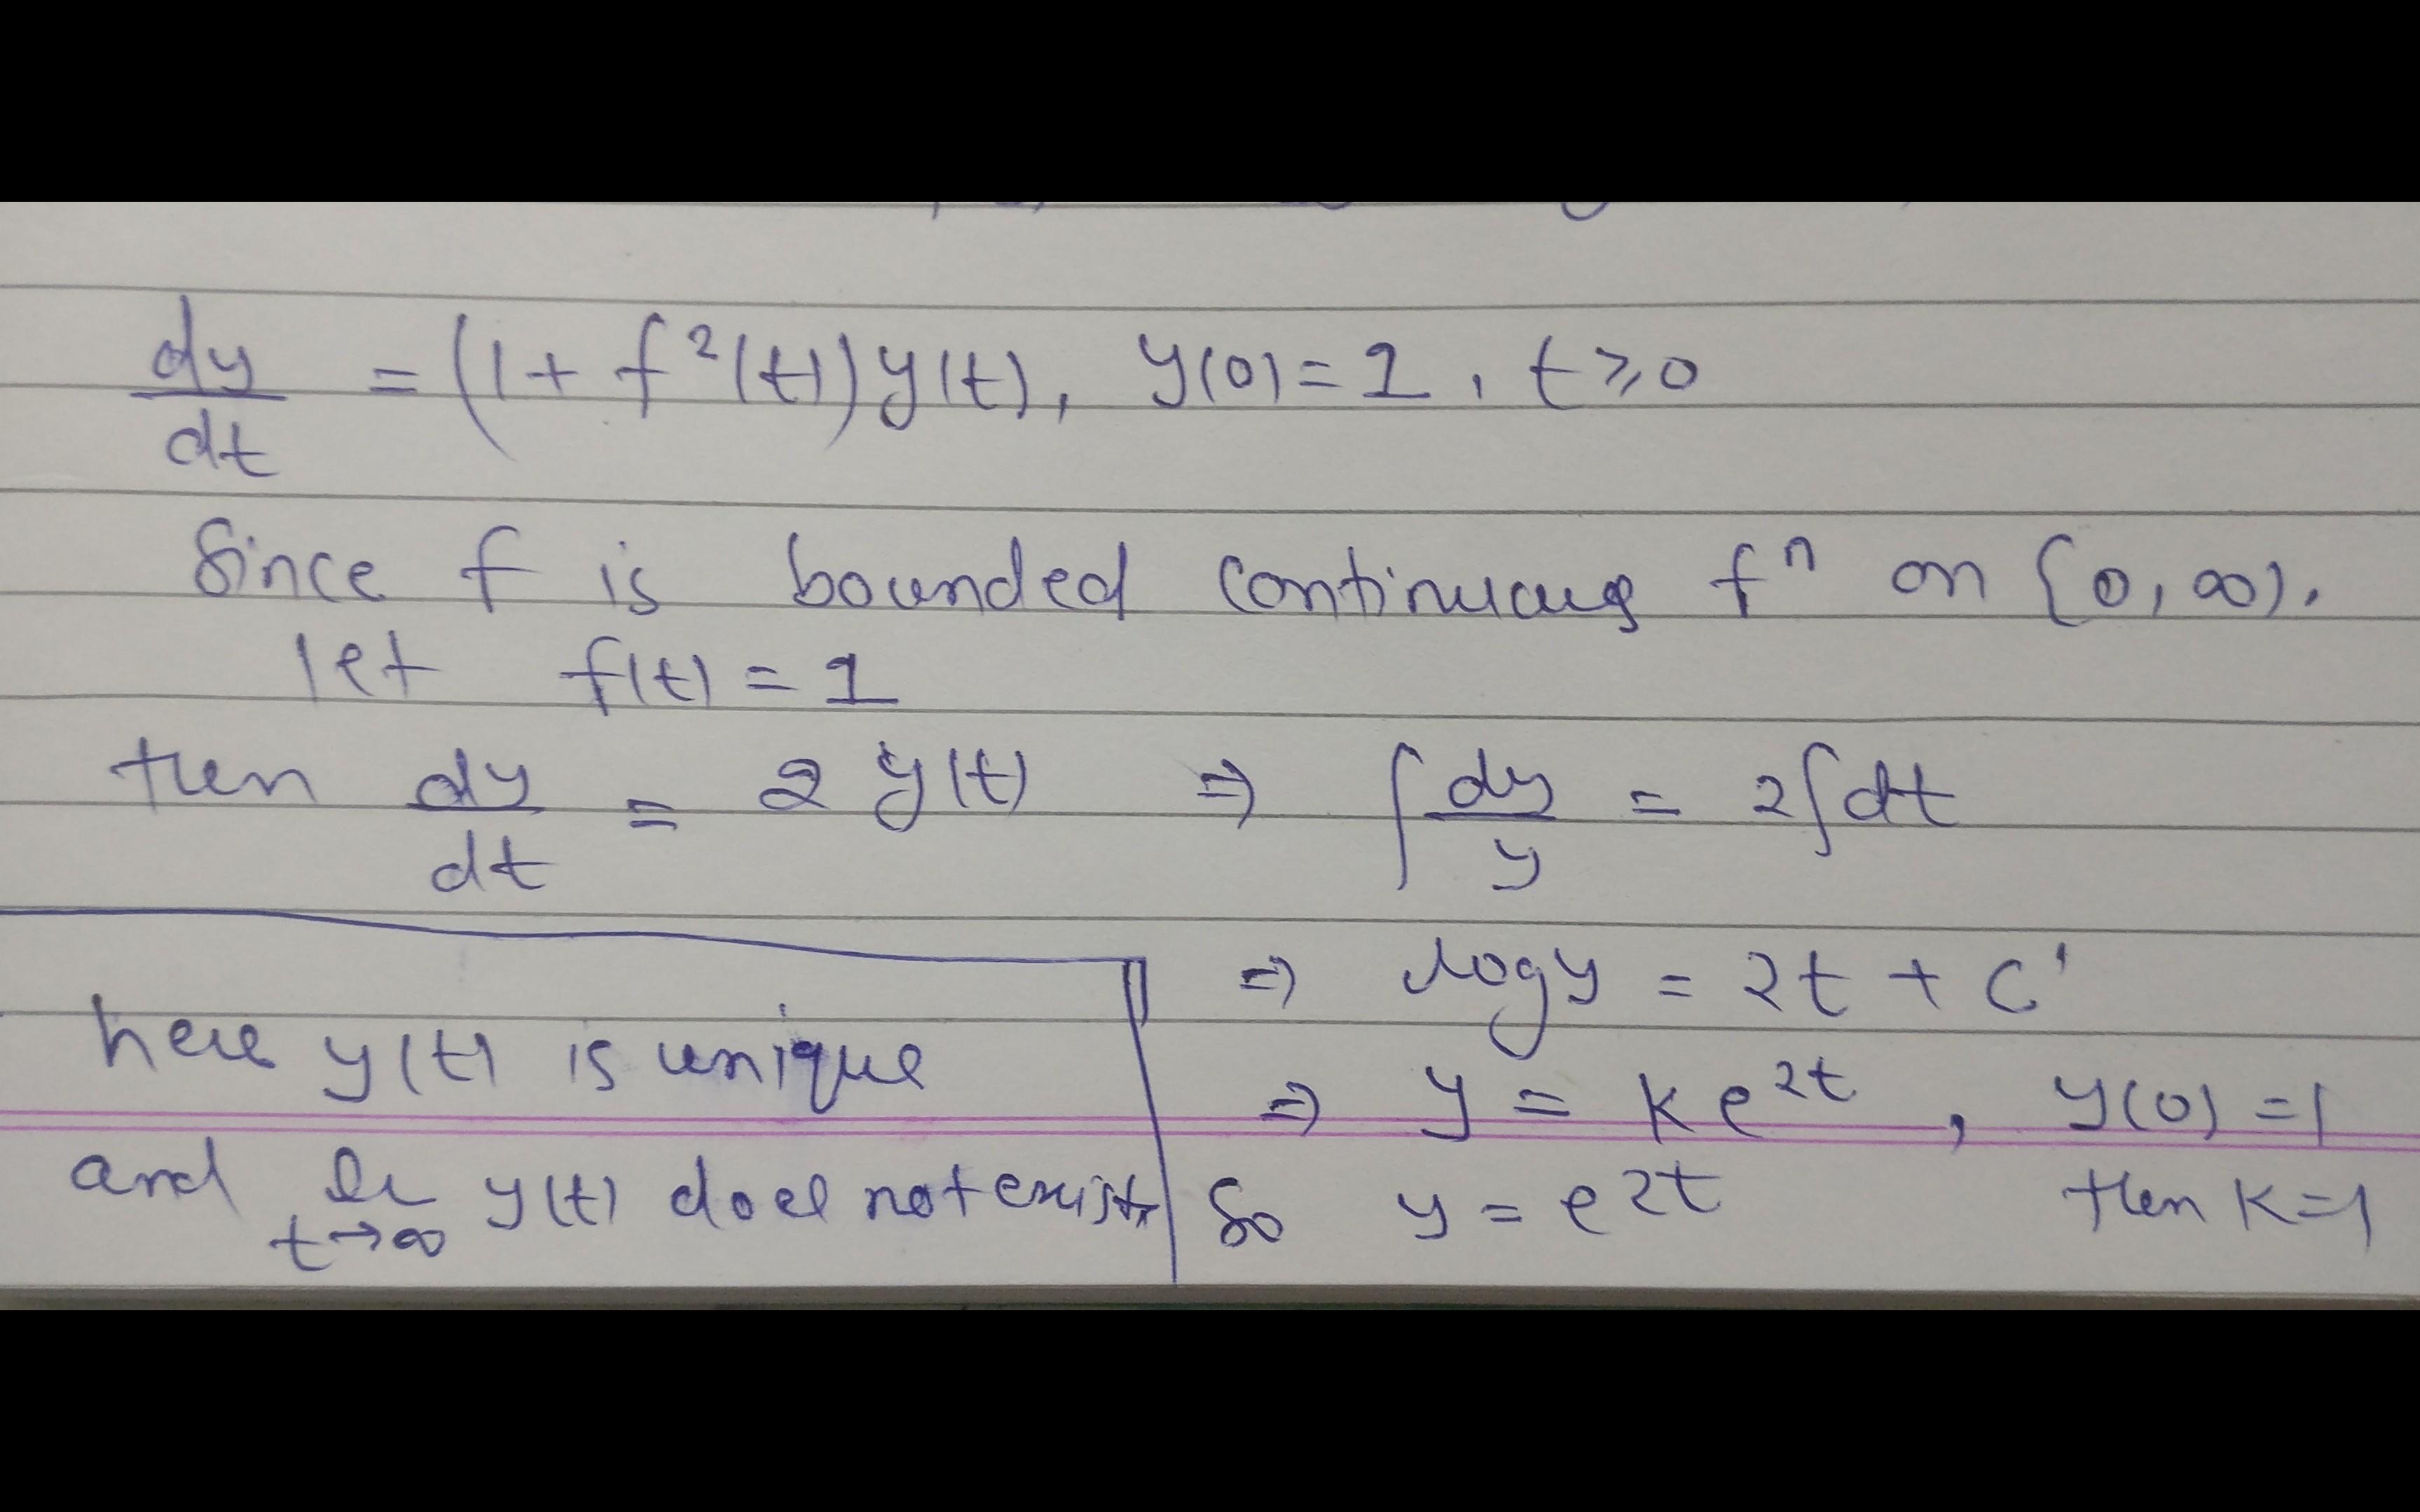 dy/dt = (1 + f²(t)) y(t), y(0) = 1, t ≥ 0
Since f is bounded continuous fⁿ on [0, ∞).
let f(t) = 1
then dy/dt = 2 y(t) ⇒ ∫ dy/y = 2∫dt
⇒ log y = 2t + c'
⇒ y = k e^{2t}, y(0) = 1
So y = e^{2t} then k = 1
here y(t) is unique
and li t→∞ y(t) does not exist